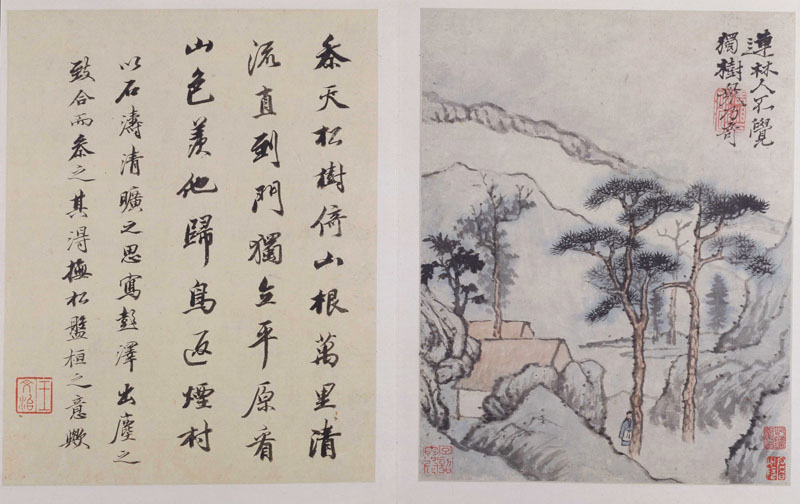 連林人不覺
獨樹衆乃奇
叅天松樹倚山根萬里清
流直到門獨立平原看
山色羨他歸鳥返煙村
以石濤清曠之思寫彭澤出塵之
致合而叅之其得撫松盤桓之意歟
王文治